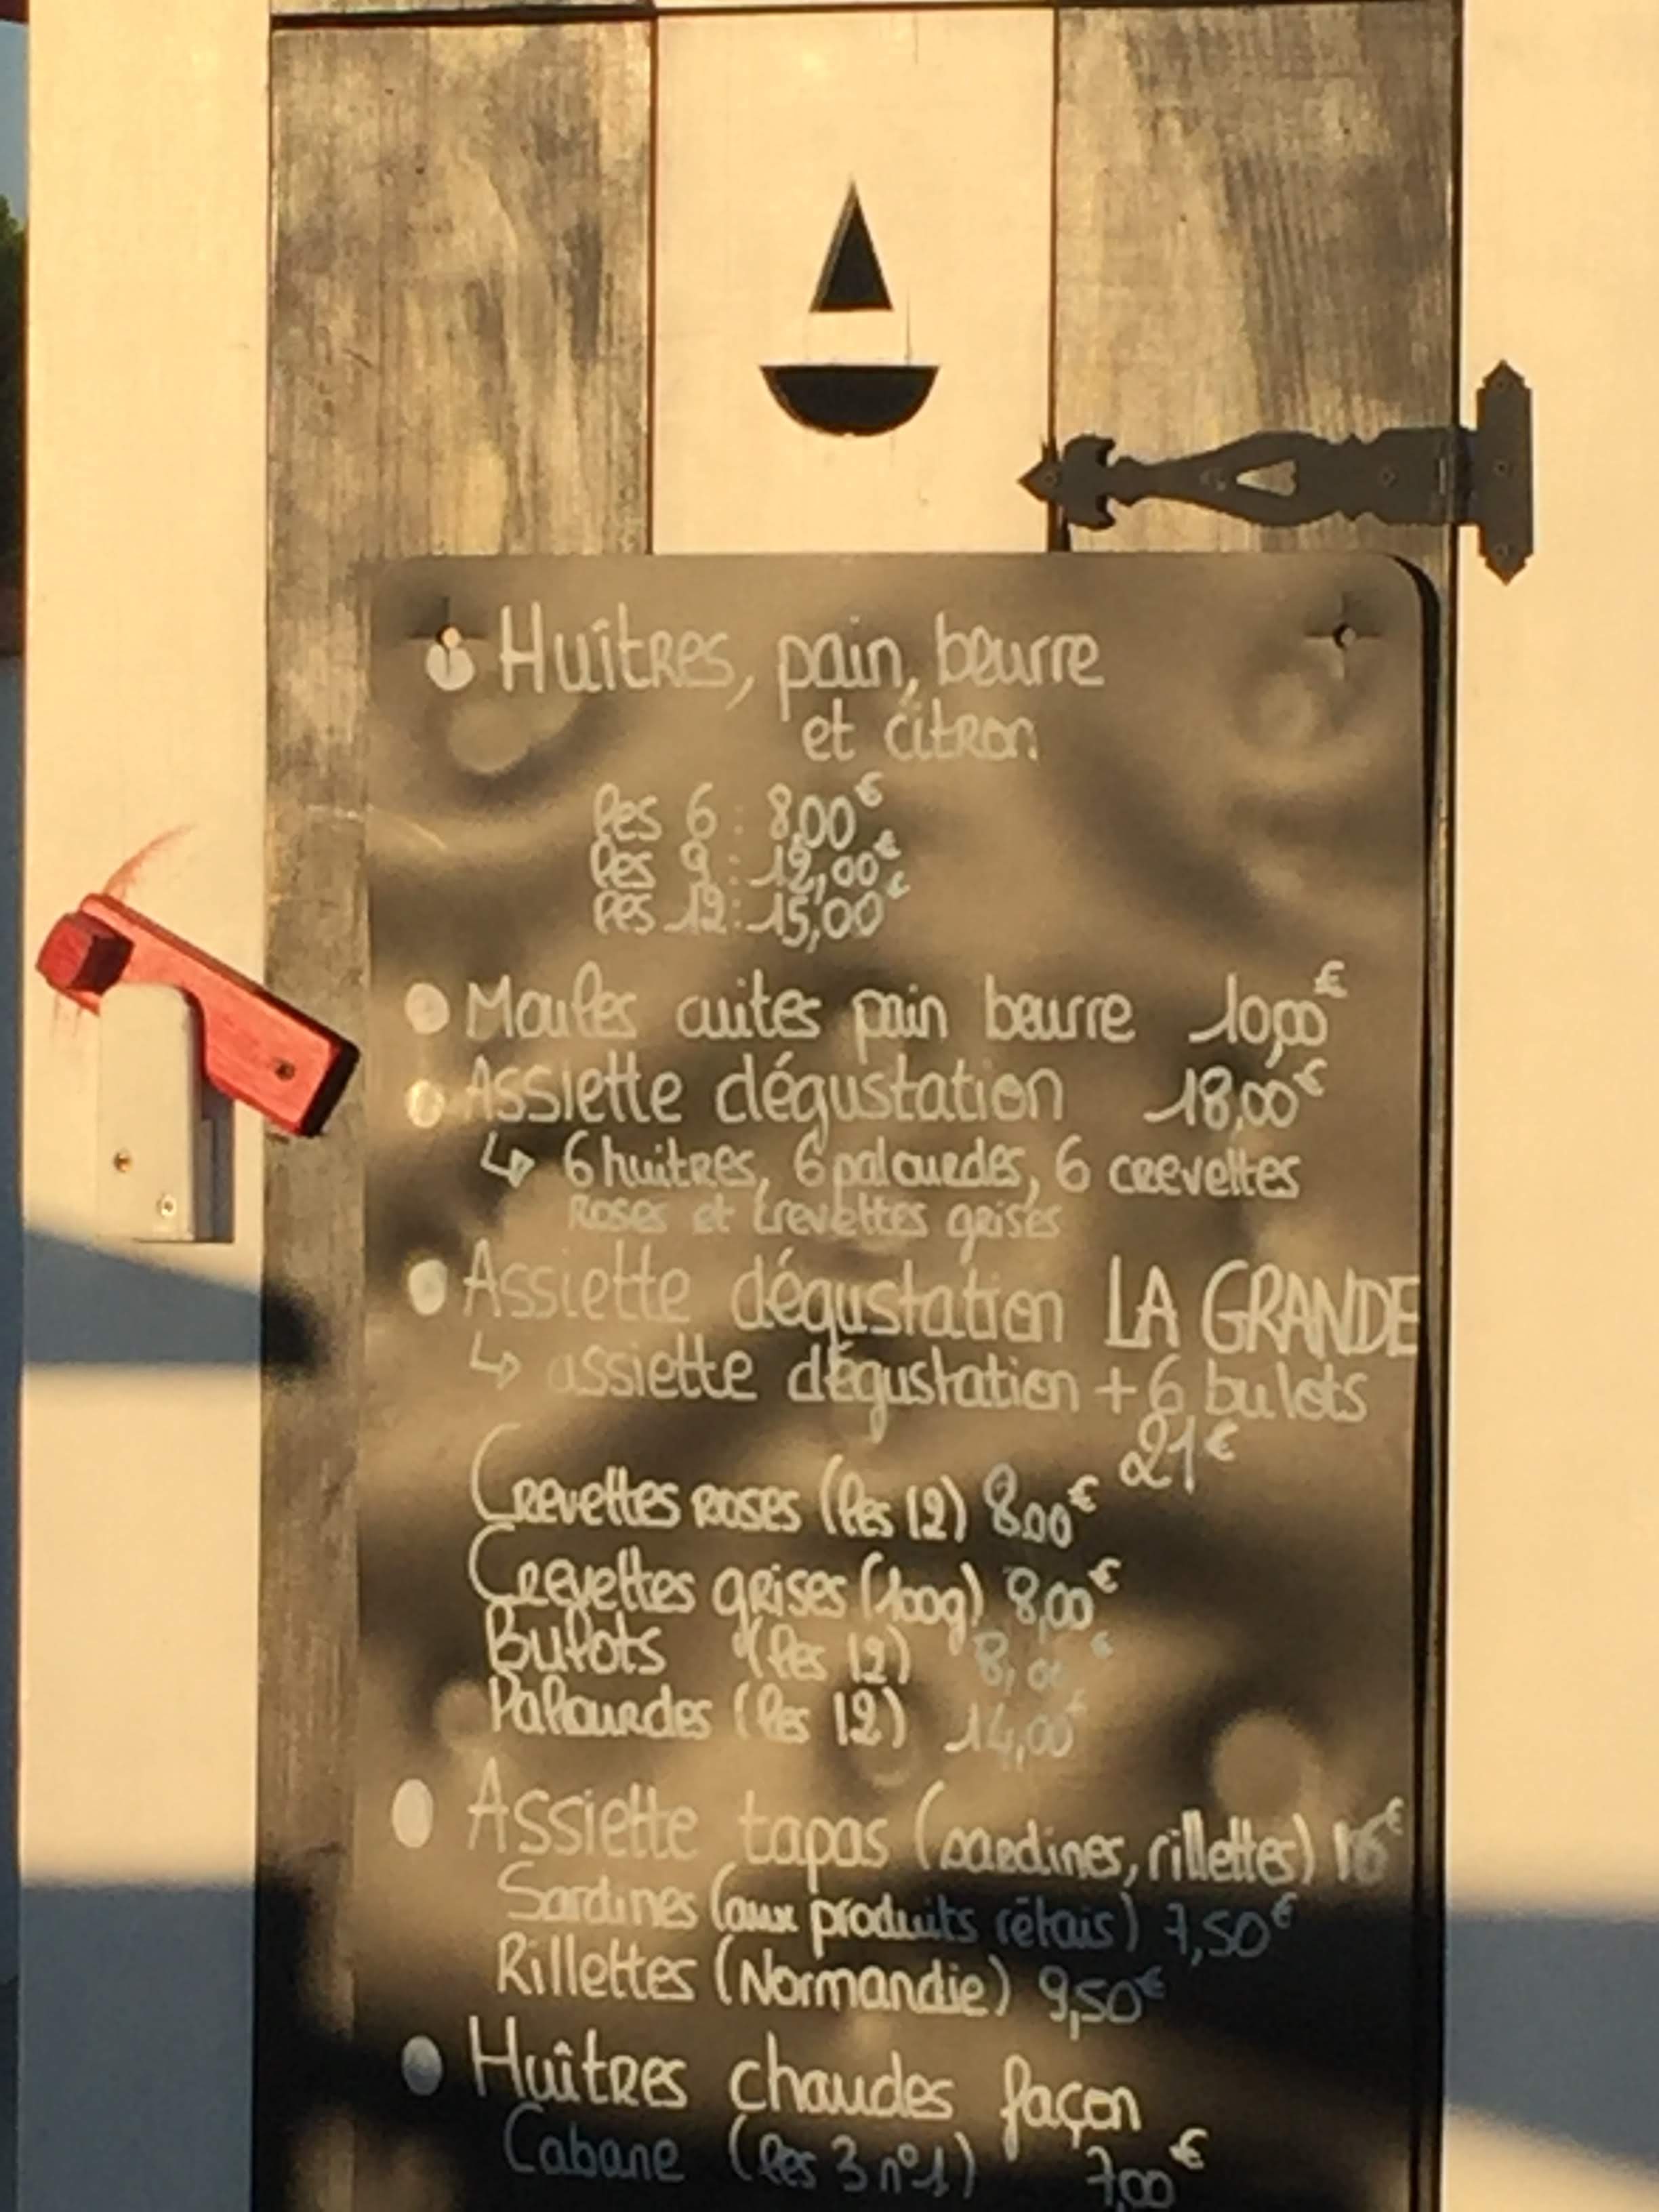 Huîtres, pain, beurre
et citron
les 6 : 8,00€
les 9 : 12,00€
les 12 : 15,00€
Moules cuites pain beurre 10,00€
Assiette dégustation 18,00€
↳ 6 huitres, 6 palourdes, 6 crevettes
roses et crevettes grises
Assiette dégustation LA GRANDE
↳ assiette dégustation + 6 bulots
21€
Crevettes roses (les 12) 8,00€
Crevettes grises (100g) 8,00€
Bulots (les 12) 8,00€
Palourdes (les 12) 14,00€
Assiette tapas (sardines, rillettes)
Sardines (aux produits rétais) 7,50€
Rillettes (Normandie) 9,50€
Huîtres chaudes façon
Cabane (les 3 n°1) 7,00€